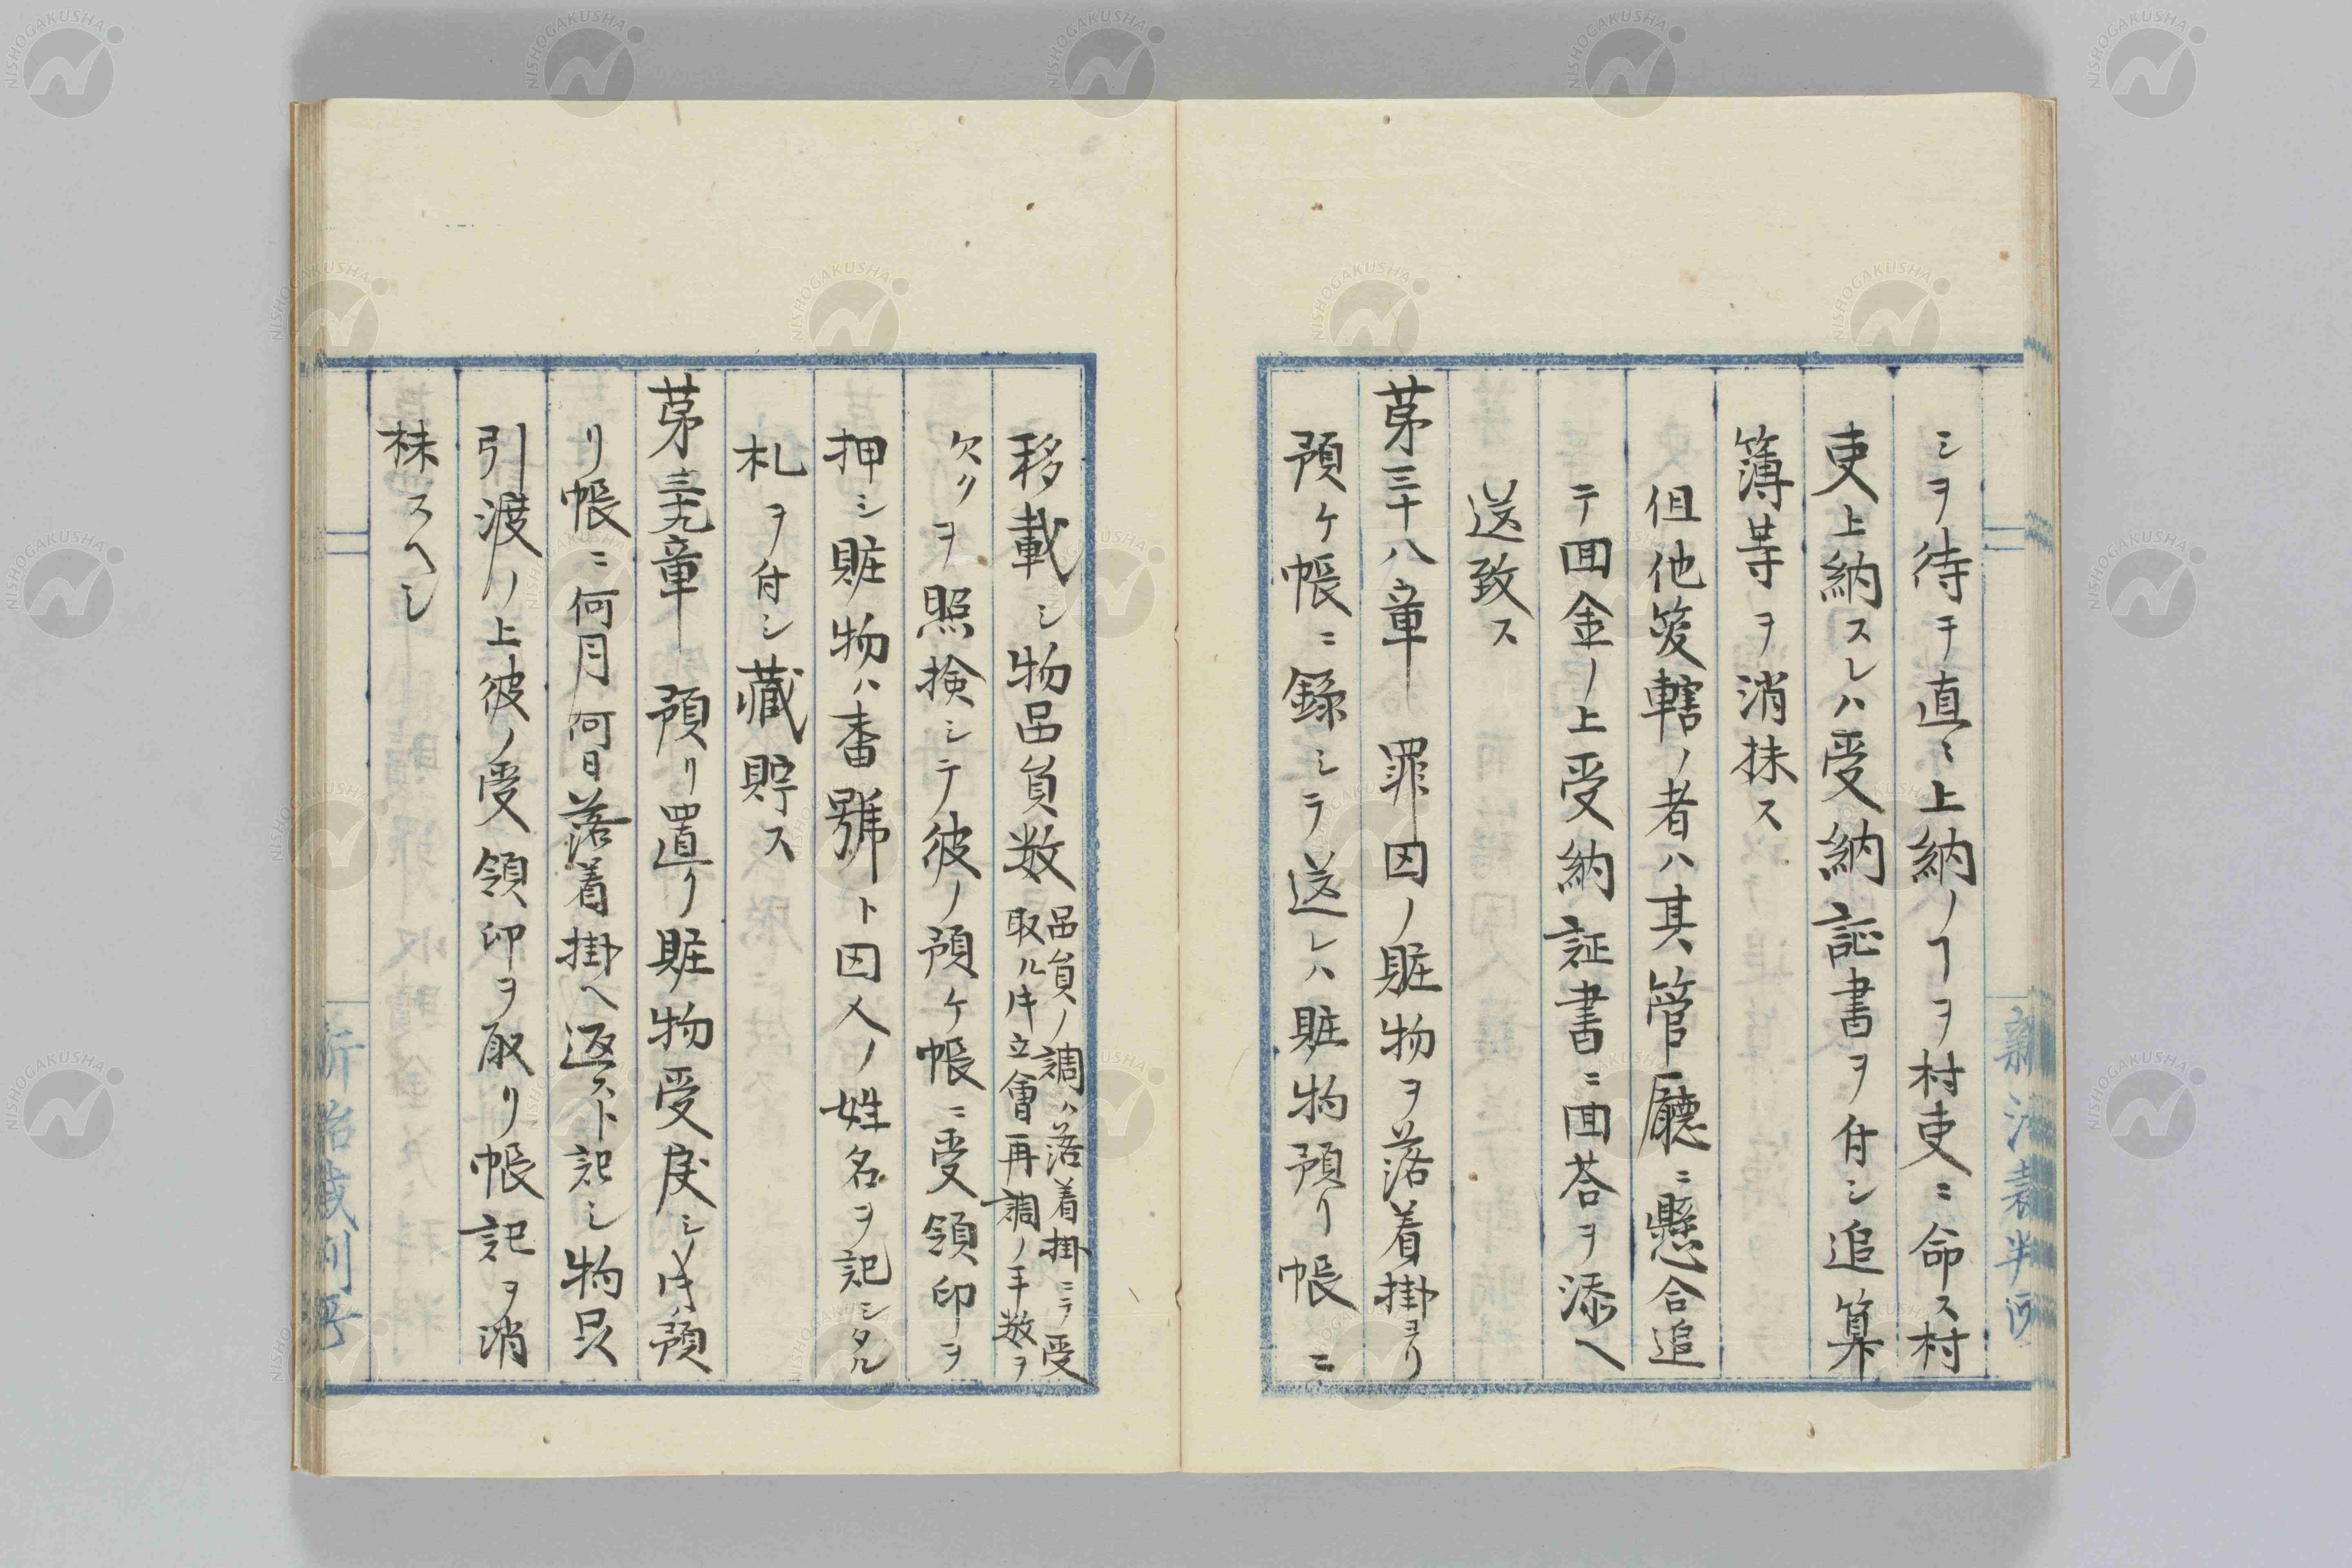 シヲ待チ直ニ上納ノヿヲ村吏ニ命ス村
吏上納スレハ受納証書ヲ付シ追算
簿等ヲ消抹ス
但他管轄ノ者ハ其管廳ニ懸合追
テ回金ノ上受納証書ニ回荅ヲ添ヘ
送致ス
苐三十八章 罪囚ノ賍物ヲ落着掛ヨリ
預ケ帳ニ錄シテ送レハ賍物預リ帳ニ
移載シ物品員数
品員ノ調ハ落着掛ニテ受
取ル𪜈立會再調ノ手数ヲ
欠クヲ照検シテ彼ノ預ケ帳ニ受領印ヲ
押シ賍物ハ番號ト囚人ノ姓名ヲ記シタル
札ヲ付シ藏貯ス
苐三十九章 預リ置ク賍物受戾シノ𪜈ハ預
リ帳ニ何月何日落着掛ヘ返ストト記シ物只
引渡ノ上彼ノ受領印ヲ取リ帳記ヲ消
抹スヘシ
NISHOGAKUSHA